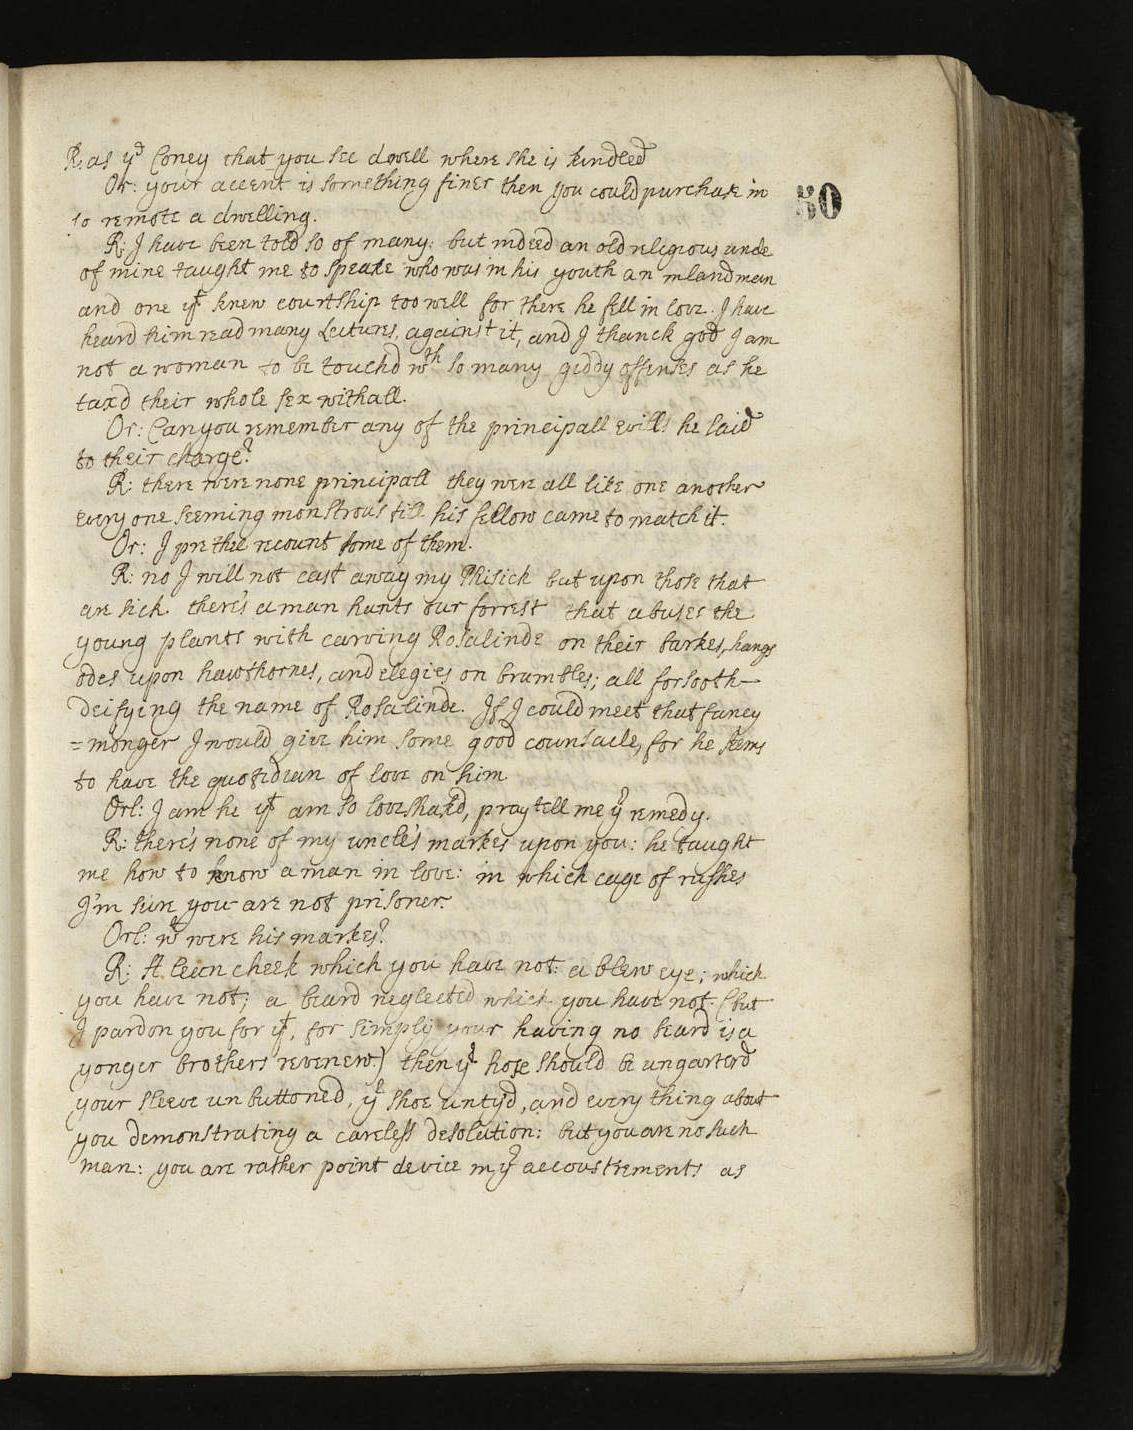 R: as yᵉ Coney that you see dwell where she is kindled
Or: your accent is something finer then you could purchase in
so remote a dwelling.
50
R: I have been told so of many: but indeed an old religious uncle
of mine taught me to speake who was in his youth an inland man
and one yᵗ knew courtship too well for there he fell in love. I have
heard him read many Lectures, against it, and I thanck god I am
not a woman to be touchd wᵗʰ so many giddy offenses as he
taxd their whole sex withall.
Or: Can you remember any of the principall evills he laid
to their charge?
R: there were none principall they were all like one another
every one seeming monstrous till his fellow came to match it.
Or: I prethee recount some of them.
R: no I will not cast away my Phisick but upon those that
are sick. there's a man hants our forrest that abuses the
young plants with carving Rosalinde on their barkes, hangs
odes upon hawthornes, and elegies on brambles; all forsooth—
deifying the name of Rosalinde. If I could meet that fancy
=monger I would give him some good counsaile, for he seems
to have the quotidian of love on him
Orl: I am he yᵗ am so love shakd, pray tell me yʳ remedy.
R: there's none of my uncle's markes upon you: he taught
me how to know a man in love: in which cage of rushes
I'm sure you are not prisoner.
Orl: wᵗ were his markes?
R: A lean cheek which you have not: a blew eye; which
you have not; a beard neglected which you have not. (but
I pardon you for yᵗ, for simply your having no beard is a
yonger brothers revenew.) then yʳ hose should be ungarterd
your sleeve unbuttoned, yʳ shoe untyd, and every thing about
you demonstrating a careless desolution: but you are no such
man: you are rather point device in yʳ accoustrements as